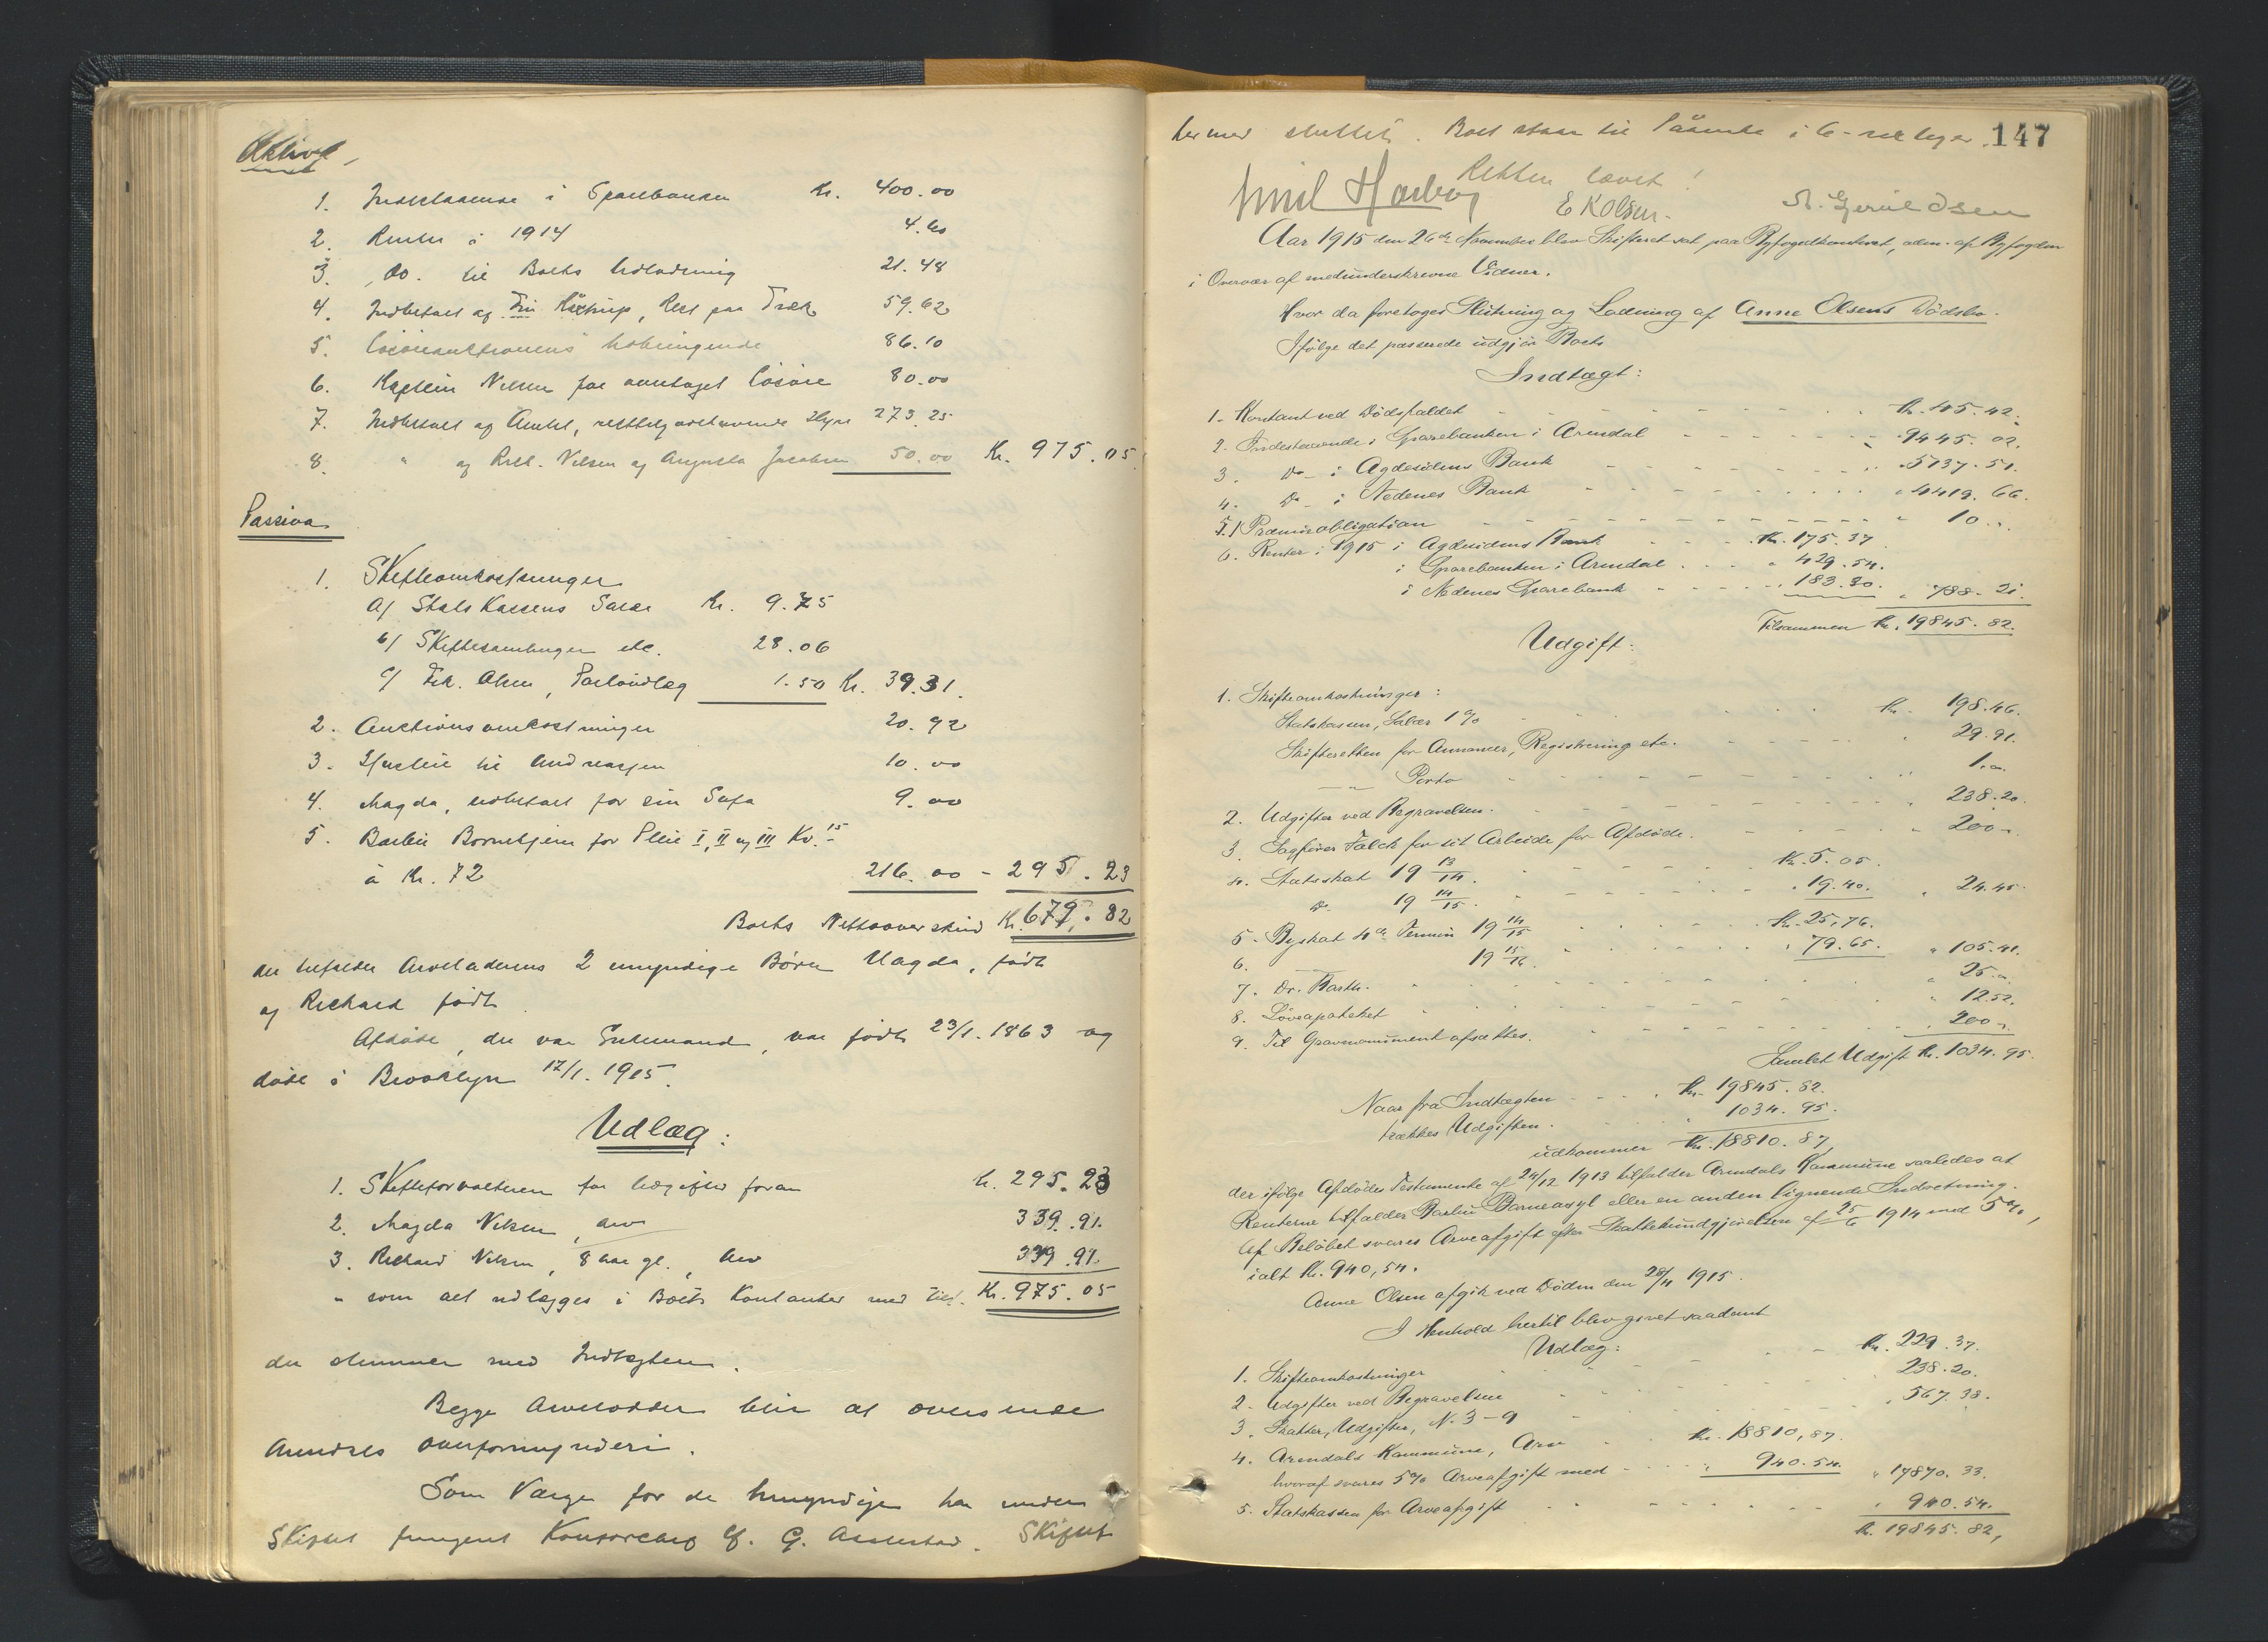 Aktiva
1. Indestaaende i Sparebanken Kr. 400.00
2. Renter i 1914 4.60
3. Do. til Boets Udlodning 21.48
4. Indbetalt af Rest paa Træk 59.62
5. Løsøreauktionens Udbringende 86.10
6. Kaptein Nilsen for overtaget Løsøre 80.00
7. Indbetalt af Amtet, resttilgodehavende Hyre 273.25
8. " af Rich. Nilsen og Augusta Jacobsen 50.00 Kr. 975.05
Passiva
1. Skifteomkostninger
a/ Statskassens Salær Kr. 9.75
b/ Skiftesamlinger etc. 28.06
c/ Frk. Olsen, Portoudlæg 1.50 Kr. 39.31.
2. Auctionsomkostninger 20.92
3. Husleie til Andreassen 10.00
4. Magda, udbetalt for sin Sofa 9.00
5. Barbu Børnehjem for Pleie I, II og III Kv. 15
à Kr. 72 216.00 - 295.23
Boets Nettooverskud Kr. 679.82
der tilfalder Arveladerens 2 umyndige Børn Magda, født
og Richard født
Afdøde, der var Enkemand, var født 23/1. 1863 og
døde i Brooklyn 17/1. 1915.
Udlæg:
1. Skifteforvalteren for Udgifter foran Kr. 295.23
2. Magda Nilsen, arv 339.91.
3. Richard Nilsen, 8 aar gl., arv 339.91.
" som alt udlægges i Boets Kontanter med tils. Kr. 975.05
der stemmer med Indtægten.
Begge Arvelodder blir at oversende
Arendals overformynderi.
Som Værge for de Umyndige har under
Skiftet fungert G. Skiftet
147
hermed sluttet. Boet staar til Paaanke i 6 - sex uger.
Retten hævet!
Emil E K Olsen. Geruldsen
Aar 1915 den 26de November blev Skifteret sat paa Byfogedkontoret, adm. af Byfogden
i Overvær af medunderskrevne Vidner.
Hvor da foretoges Slutning og Lodning af Anne Olsens Dødsbo.
Ifølge det passerede udgjør Boets
Indtægt:
1. Kontant ved Dødsfaldet Kr. 45.42.
2. Indestaaende i Sparebanken i Arendal " 9445.02.
3. Do - i Agdesidens Bank " 5137.51.
4. Do - i Nedenes Bank " 4419.66.
5. 1 Præmieobligation " 10.".
6. Renter i 1915 i Agdesidens Bank Kr. 175.37
i Sparebanken i Arendal " 429.54.
i Nedenes Sparebank " 183.30. " 788.21.
Tilsammen Kr. 19845.82.
Udgift:
1. Skifteomkostninger:
Statskassen, Salær 1% Kr. 198.46.
Skifteretten for Annoncer, Registrering etc. " 29.91.
— " — Porto " 1.".
2. Udgifter ved Begravelsen. " 238.20.
3. Sagfører Falck for sit Arbeide for Afdøde. " 200.".
4. Statsskat 19 13/14. Kr. 5.05.
Do. 19 14/15. " 19.40. " 24.45.
5. Byskat 4de Termin 19 14/15 Kr. 25,76.
6. — 19 15/16. " 79.65. " 105.41.
7. Dr. Barth. " 25.".
8. Løveapoteket " 12.52.
9. Til Gravmonument afsættes. " 200.".
Samlet Udgift Kr. 1034.95.
Naar fra Indtægten Kr. 19845.82.
trækkes Udgiften. " 1034.95.
udkommer Kr. 18810.87,
der ifølge Afdødes Testamente af 24/12 1913 tilfalder Arendals Kommune saaledes at
Renterne tilfalder Barbu Barneasyl eller en anden lignende Indretning.
Af Beløbet svares Arveafgift efter Skattekundgjørelsen af 25/6 1914 med 5%,
ialt Kr. 940,54.
Anne Olsen afgik ved Døden den 28/4 1915.
I Henhold hertil blev gjort saadant
Udlæg:
1. Skifteomkostninger Kr. 229.37.
2. Udgifter ved Begravelsen " 238.20.
3. Skatter, Udgifter, N. 3-9 " 567.38.
4. Arendals Kommune, Arv Kr. 18810,87.
hvoraf svares 5% Arveafgift med " 940.54. " 17870.33.
5. Statskassen for Arveafgift " 940.54.
Kr. 19845.82,